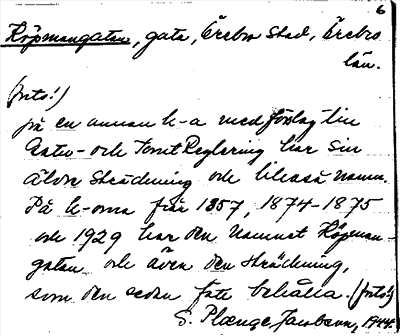 6
Köpmangatan, gata, Örebro Stad, Örebro
län.
(forts!)
på en annan k-a med förslag till
Gatu- och Tomt Reglering har sin
äldre sträckning och likaså namn.
På k-orna från 1857, 1874-1875
och 1929 har den namnet Köpman-
gatan och även den sträckning,
som den sedan fått behålla. (forts!)
S. Plænge Jacobson, 1944.